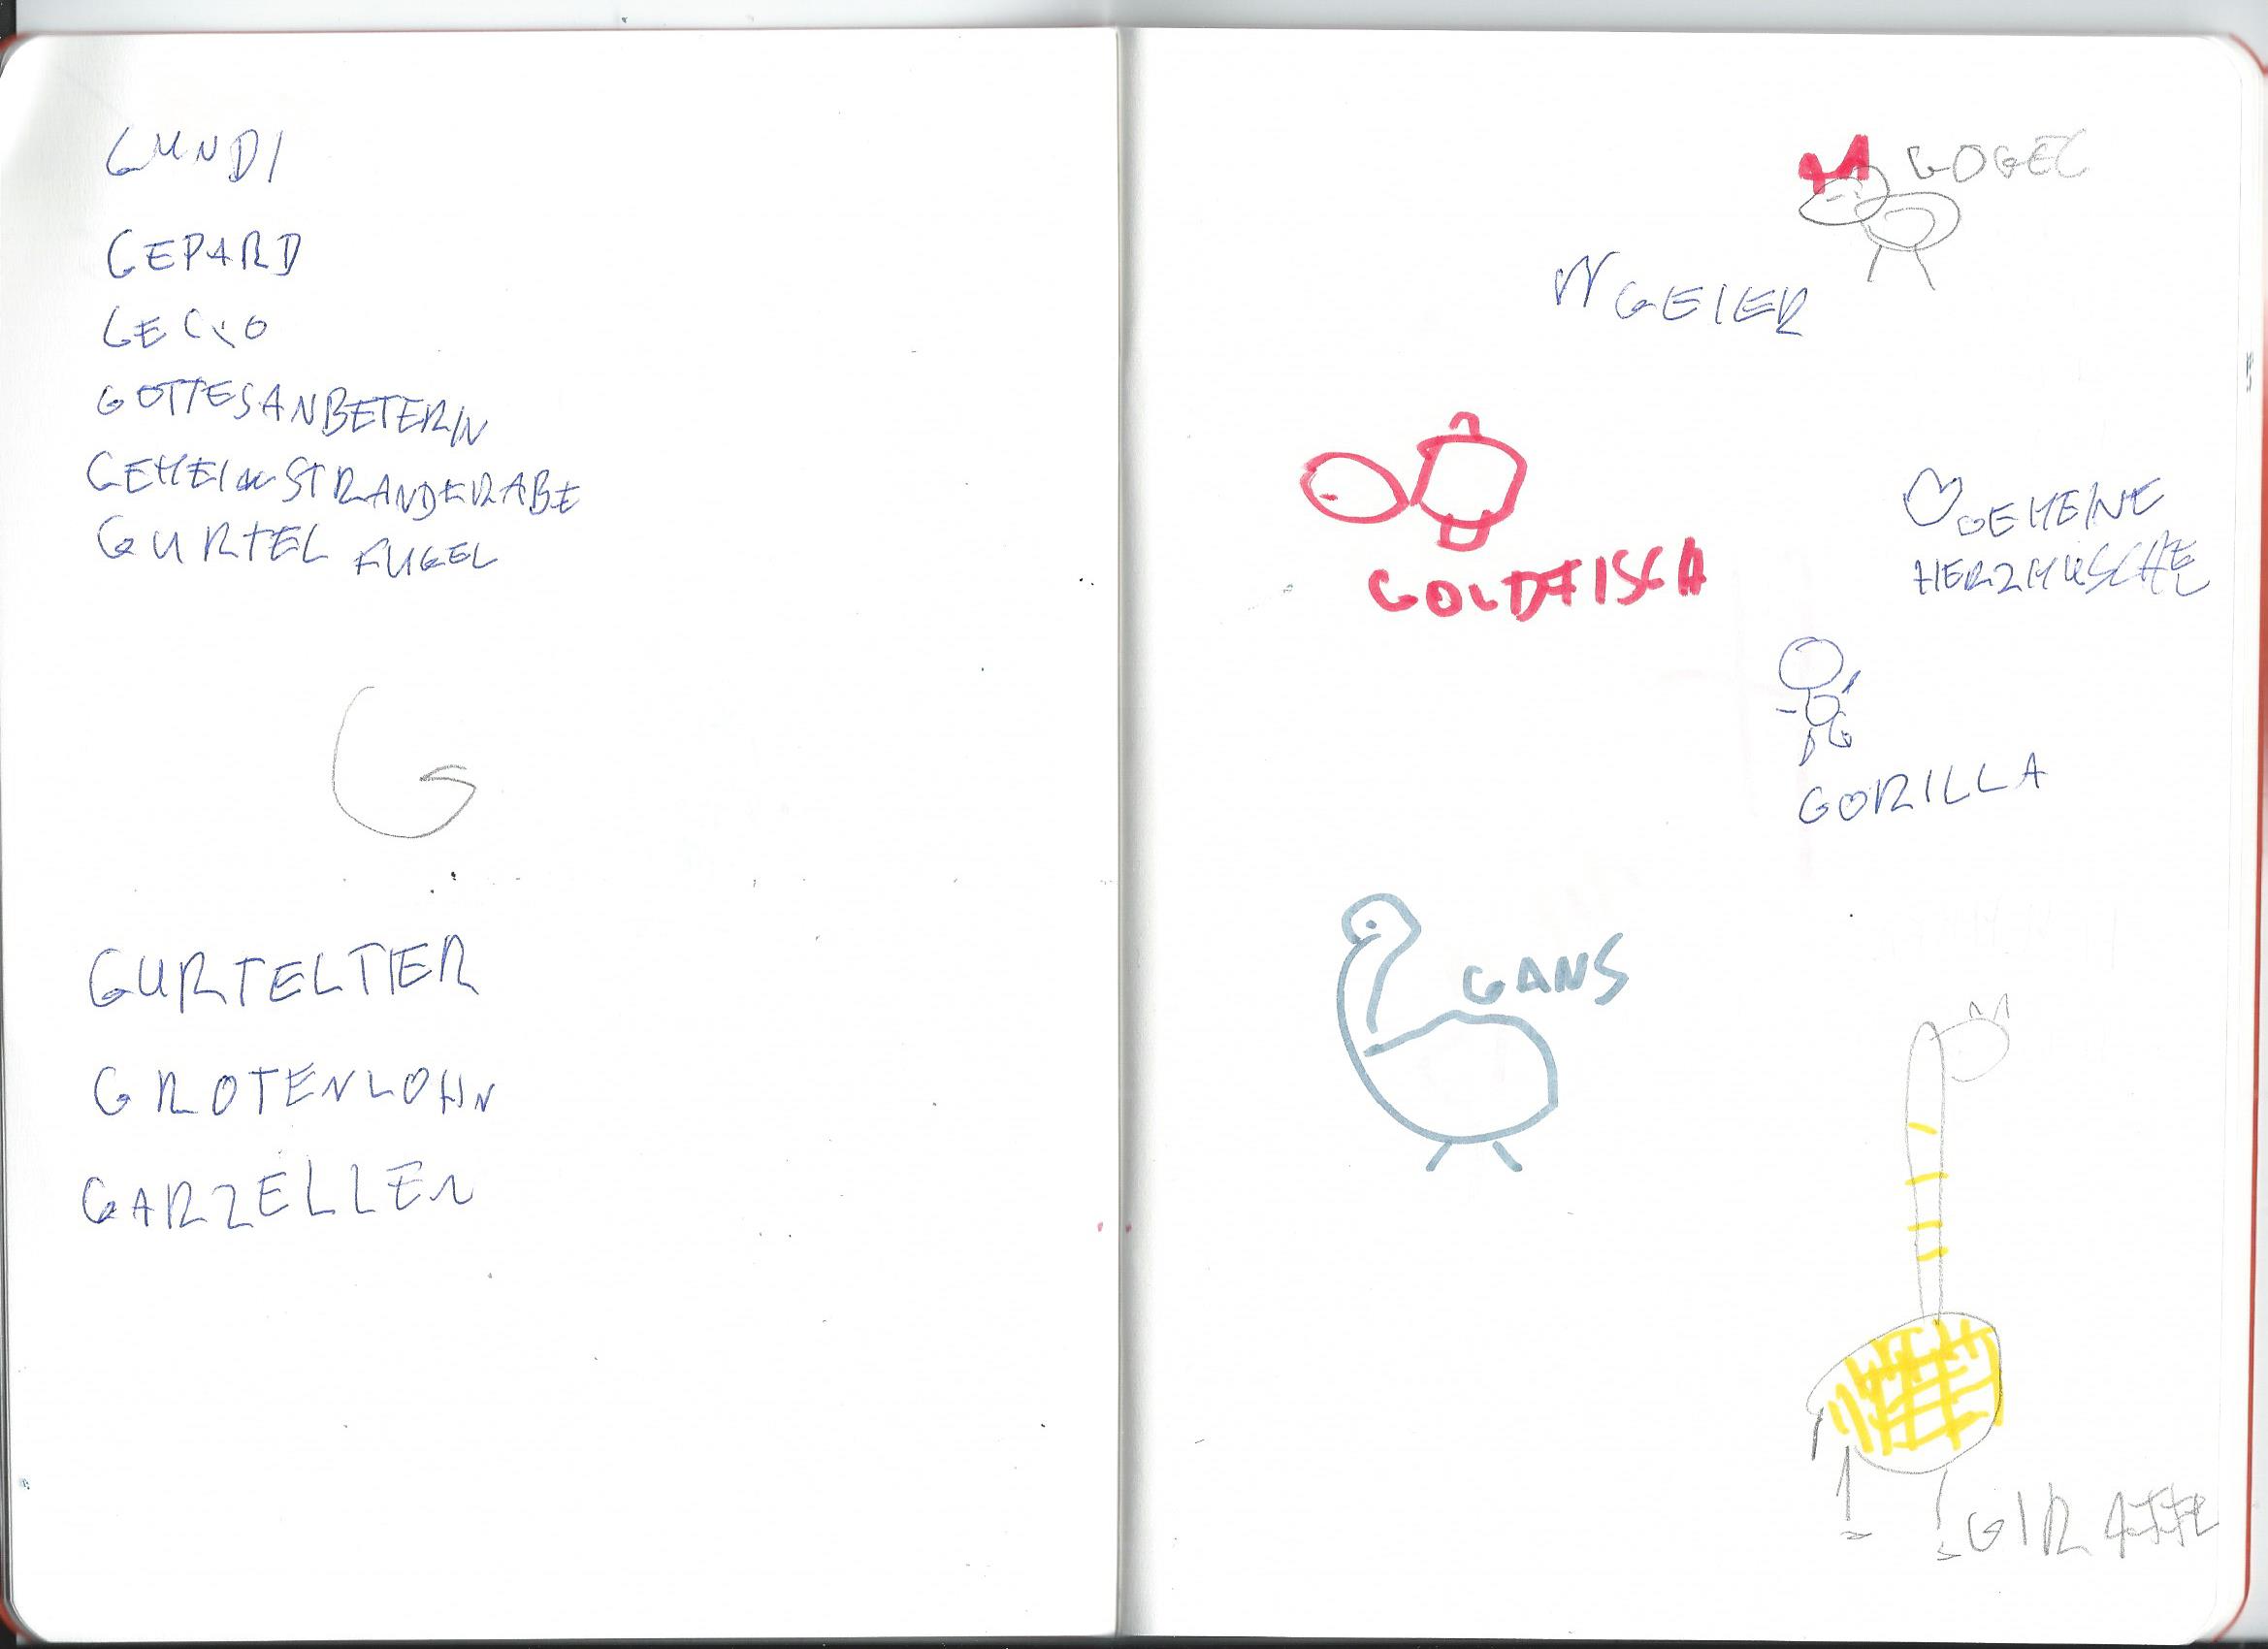 GUNDI
GEPARD
GECKO
GOTTESANBETERIN
GEMEINSTRANDKRABE
GURTEL FUGEL
G
GURTELTIER
GROTENLOHN
GARZELLEN
GOGEL
GEIER
GOLDFISCH
GEMEINE
HERZMUSCHEL
GORILLA
GANS
GIRAFFE